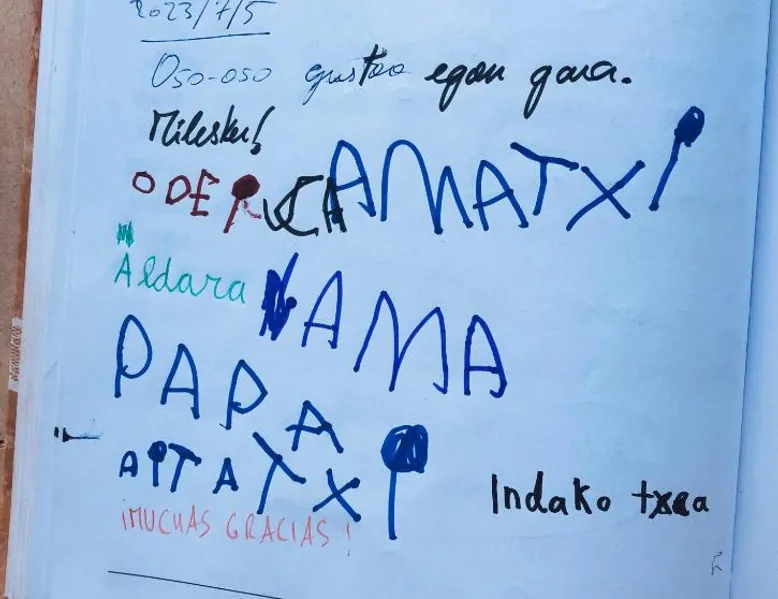 2023/7/5
Oso-oso gustoo egon gara.
Milesker!
ODER AMATXI
Aldara AMA
PAPA
AITATXI
Indako txea
¡MUCHAS GRACIAS!